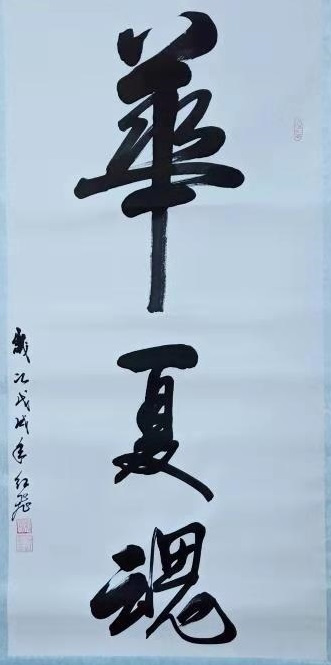 華夏魂
歲次戊戌年红